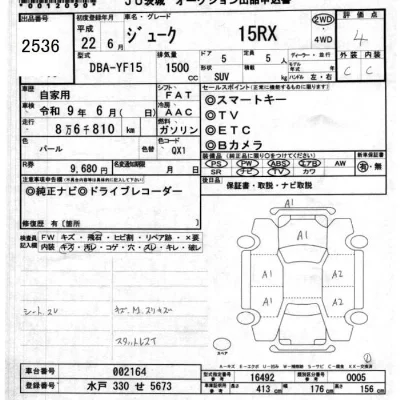 JU茨城 オークション出品申込書
出品番号
2536
初度登録年月
平成
22年 6月
車名・グレード
ジューク 15RX
2WD
4WD
評価点
4
型式
DBA-YF15
排気量
1500 CC
ドア
5
形状
SUV
定員
5人
ディーラー・並行
モデル年式 年
ハンドル 左・右
外装 内装
C C
車歴
自家用
シフト
FAT
車検
令和 9年 6月( 日)
冷房
AAC
走行
8万6千810km
燃料
ガソリン
色
パール
色替
カラーNo.
QX1
R券
9,680円
名変期限 月
セールスポイント(正常に機能するもの)
◎スマートキー
◎TV
◎ETC
◎Bカメラ
装備品(純正品に限り○をつけてください)
PS PW ABS エアB AW
SR ナビ TV カワ
新車保証書
有・無
注意事項申告欄
◎純正ナビ◎ドライブレコーダー
後日品
保証書・取説・ナビ取説
修復歴 有(箇所
検査員記入欄
FW キズ・飛石・ヒビ割・リペア跡・×要
内装 キズ・汚レ・コゲ・穴・スレ・キレ・破レ
シートスレ
スタットレスT
A1
A1 A1 A2
A1 A2
A1
スペア
車台番号
002164
登録番号
水戸 330 せ 5673
型式指定番号
16492
類別区分番号
0005
長さ 413cm
幅 176cm
高さ 156cm